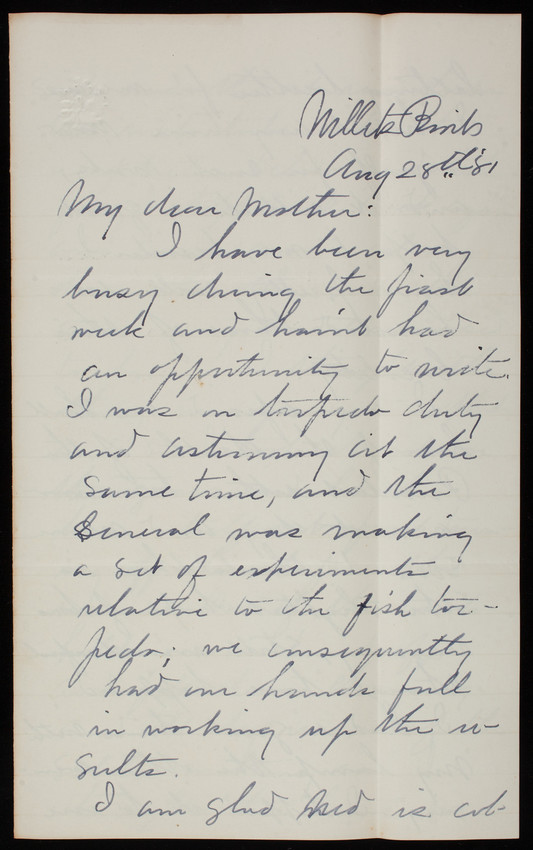 Willets Point
Aug 28th '81
My dear Mother:
I have been very
busy during the past
week and haint had
an opportunity to write.
I was on torpedo duty
and astronomy at the
same time, and the
General was making
a set of experiments
relative to the fish tor-
pedo; we consequently
had our hands full
in working up the re-
sults.
I am glad is